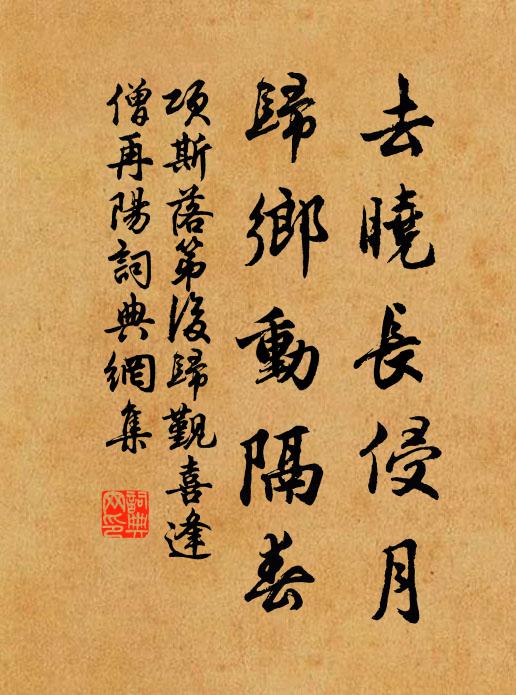 去曉長侵月
歸鄉動隔春
項斯落第後歸覲喜逢
僧再陽詞典網集
詞典
网印